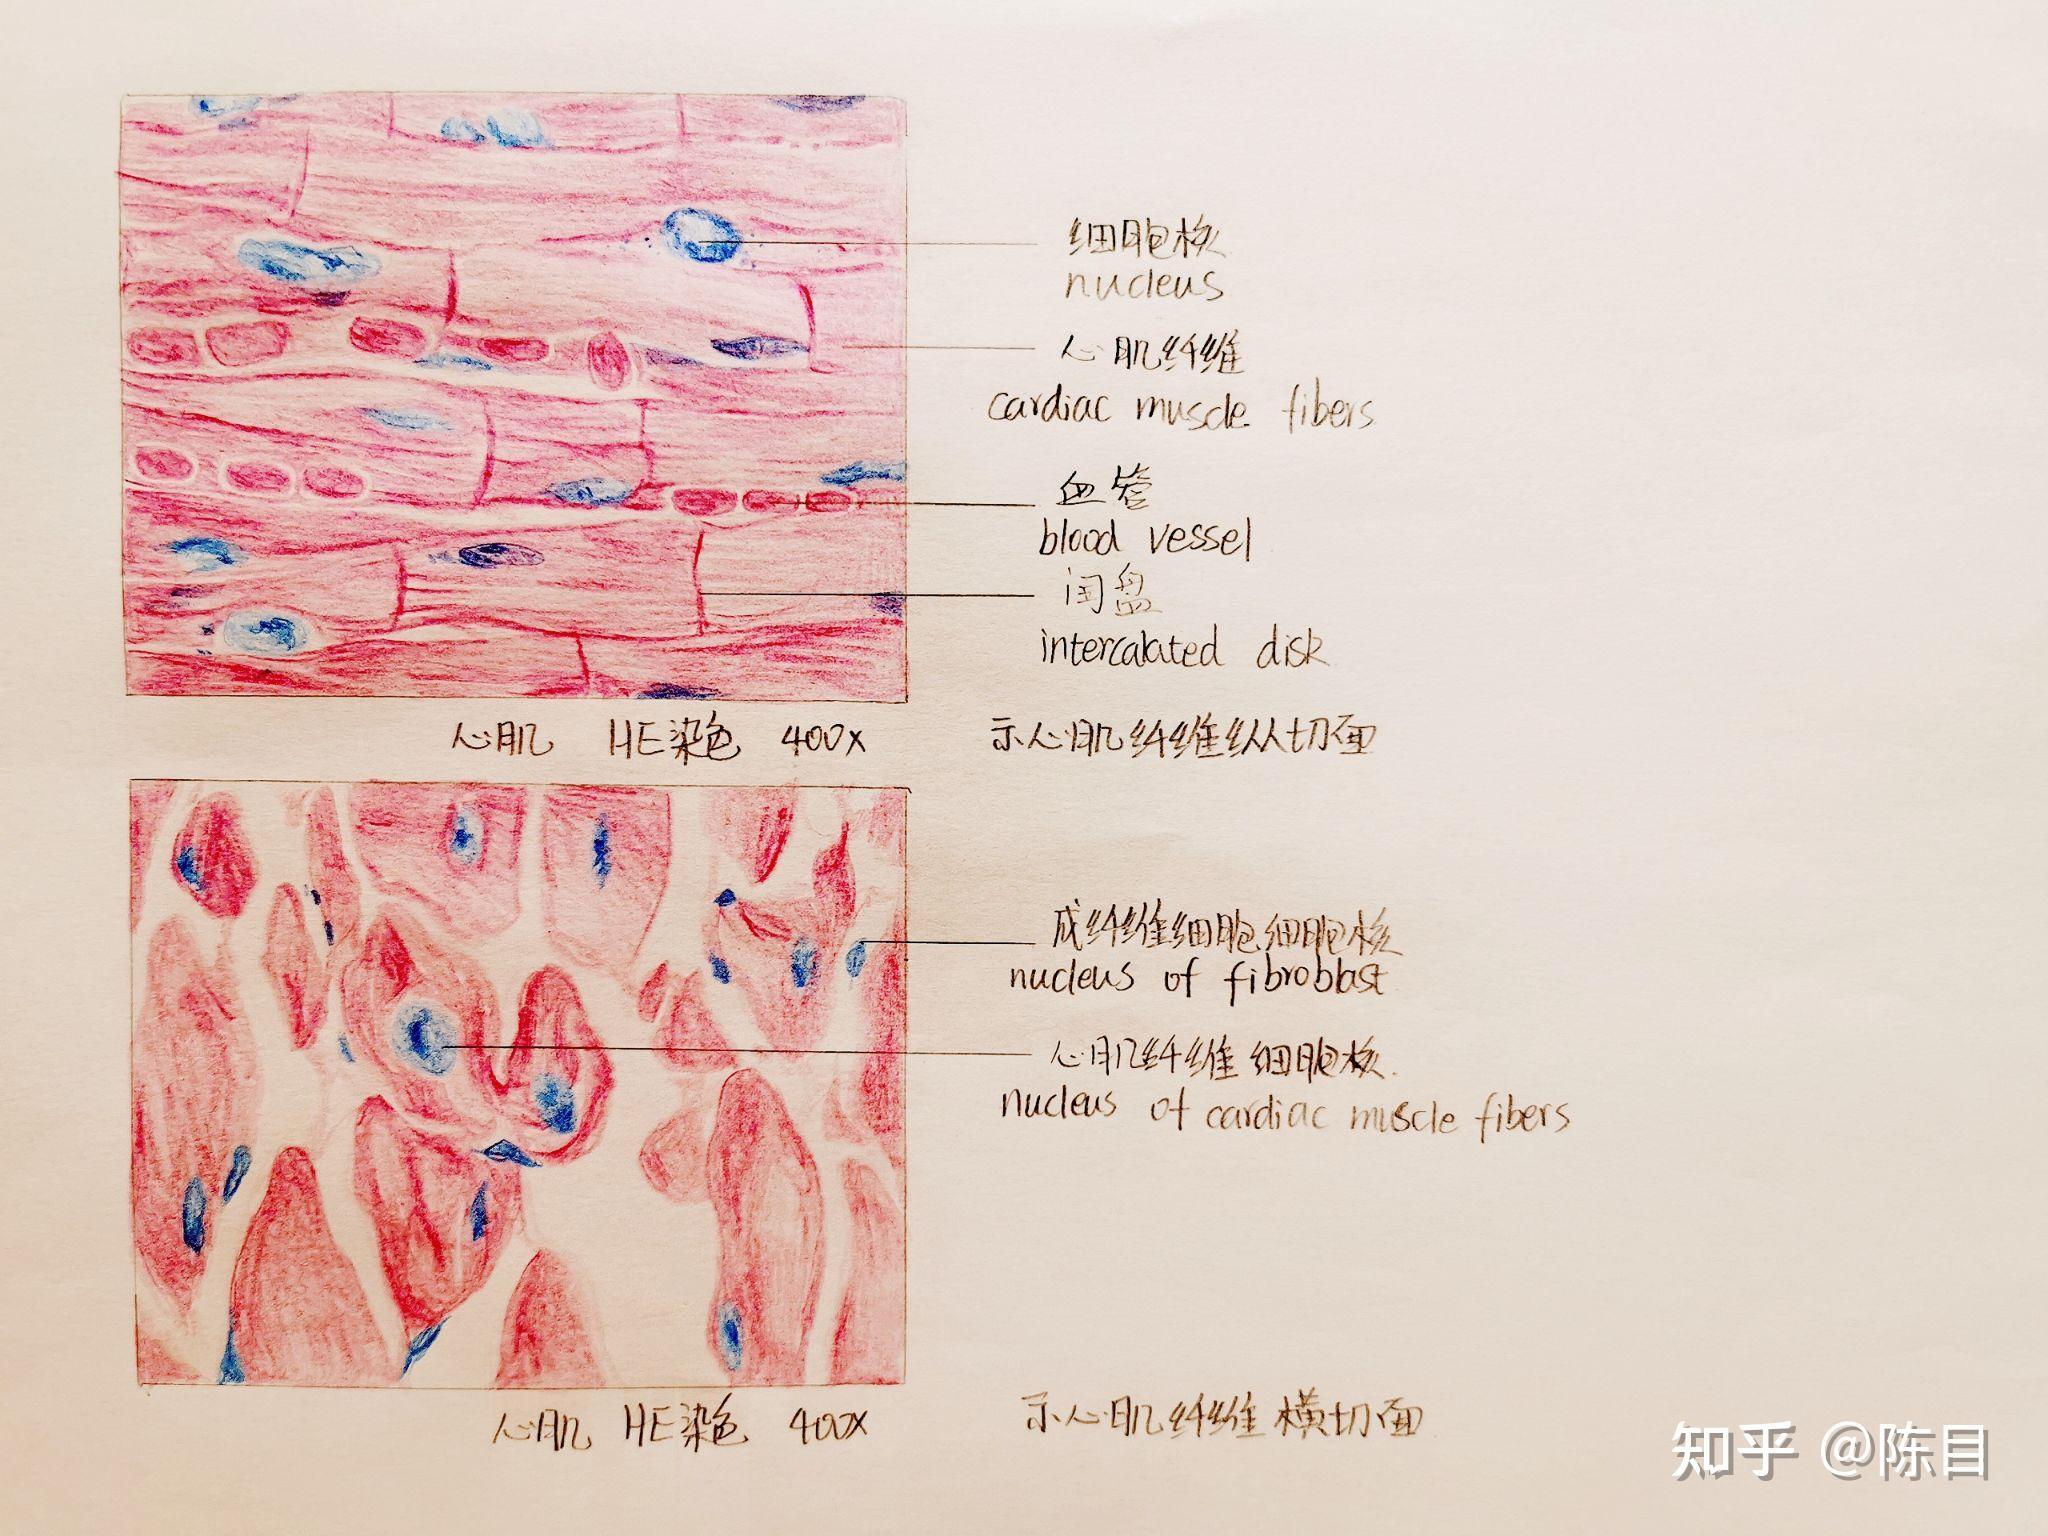 细胞核
nucleus
心肌纤维
cardiac muscle fibers
血管
blood vessel
闰盘
intercalated disk
心肌 HE染色 400x 示心肌纤维纵切面
成纤维细胞细胞核
nucleus of fibroblast
心肌纤维细胞核
nucleus of cardiac muscle fibers
心肌 HE染色 400x 示心肌纤维横切面
知乎 @陈目